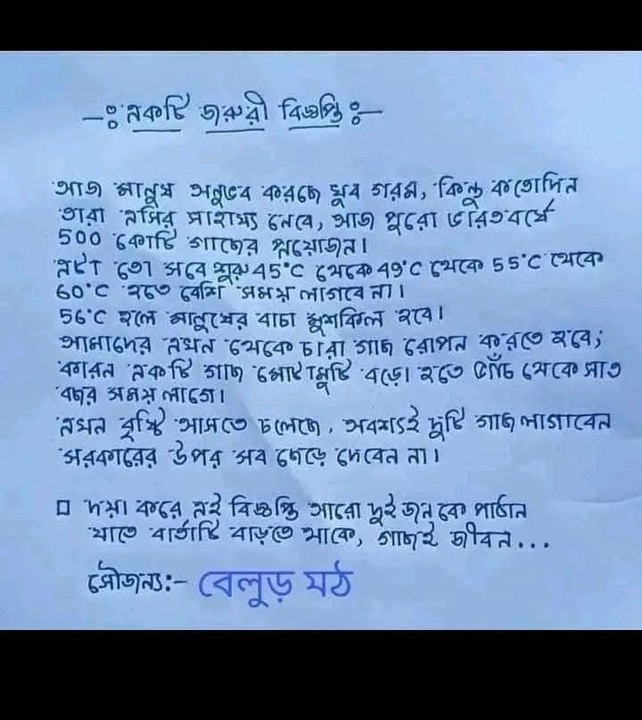 —ঃ একটি জরুরী বিজ্ঞপ্তি ঃ—
আজ মানুষ অনুভব করছে খুব গরম, কিন্তু কতোদিন
তারা এসির সাহায্য নেবে, আজ পুরো ভারতবর্ষে
500 কোটি গাছের প্রয়োজন।
এটা তো সবে শুরু 45°C থেকে 49°C থেকে 55°C থেকে
60°C হতে বেশি সময় লাগবে না।
56°C হলে মানুষের বাচা মুশকিল হবে।
আমাদের এখন থেকে চারা গাছ রোপন করতে হবে;
কারন একটি গাছ মোটামুটি বড়ো হতে পাঁচ থেকে সাত
বছর সময় লাগে।
এখন বৃষ্টি আসতে চলেছে, অবশ্যই দুটি গাছ লাগাবেন
সরকারের উপর সব ছেড়ে দেবেন না।
□ দয়া করে এই বিজ্ঞপ্তি আরো দুই জন কে পাঠান
যাতে বার্তাটি বাড়তে থাকে, গাছই জীবন...
সৌজন্য:- বেলুড় মঠ